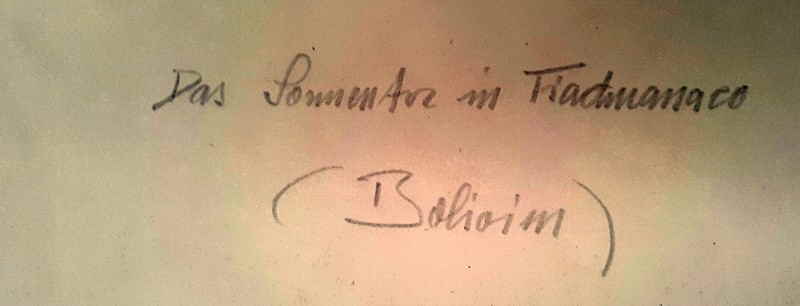 Das Sonnentor in Tiachuanaco
(Bolivien)